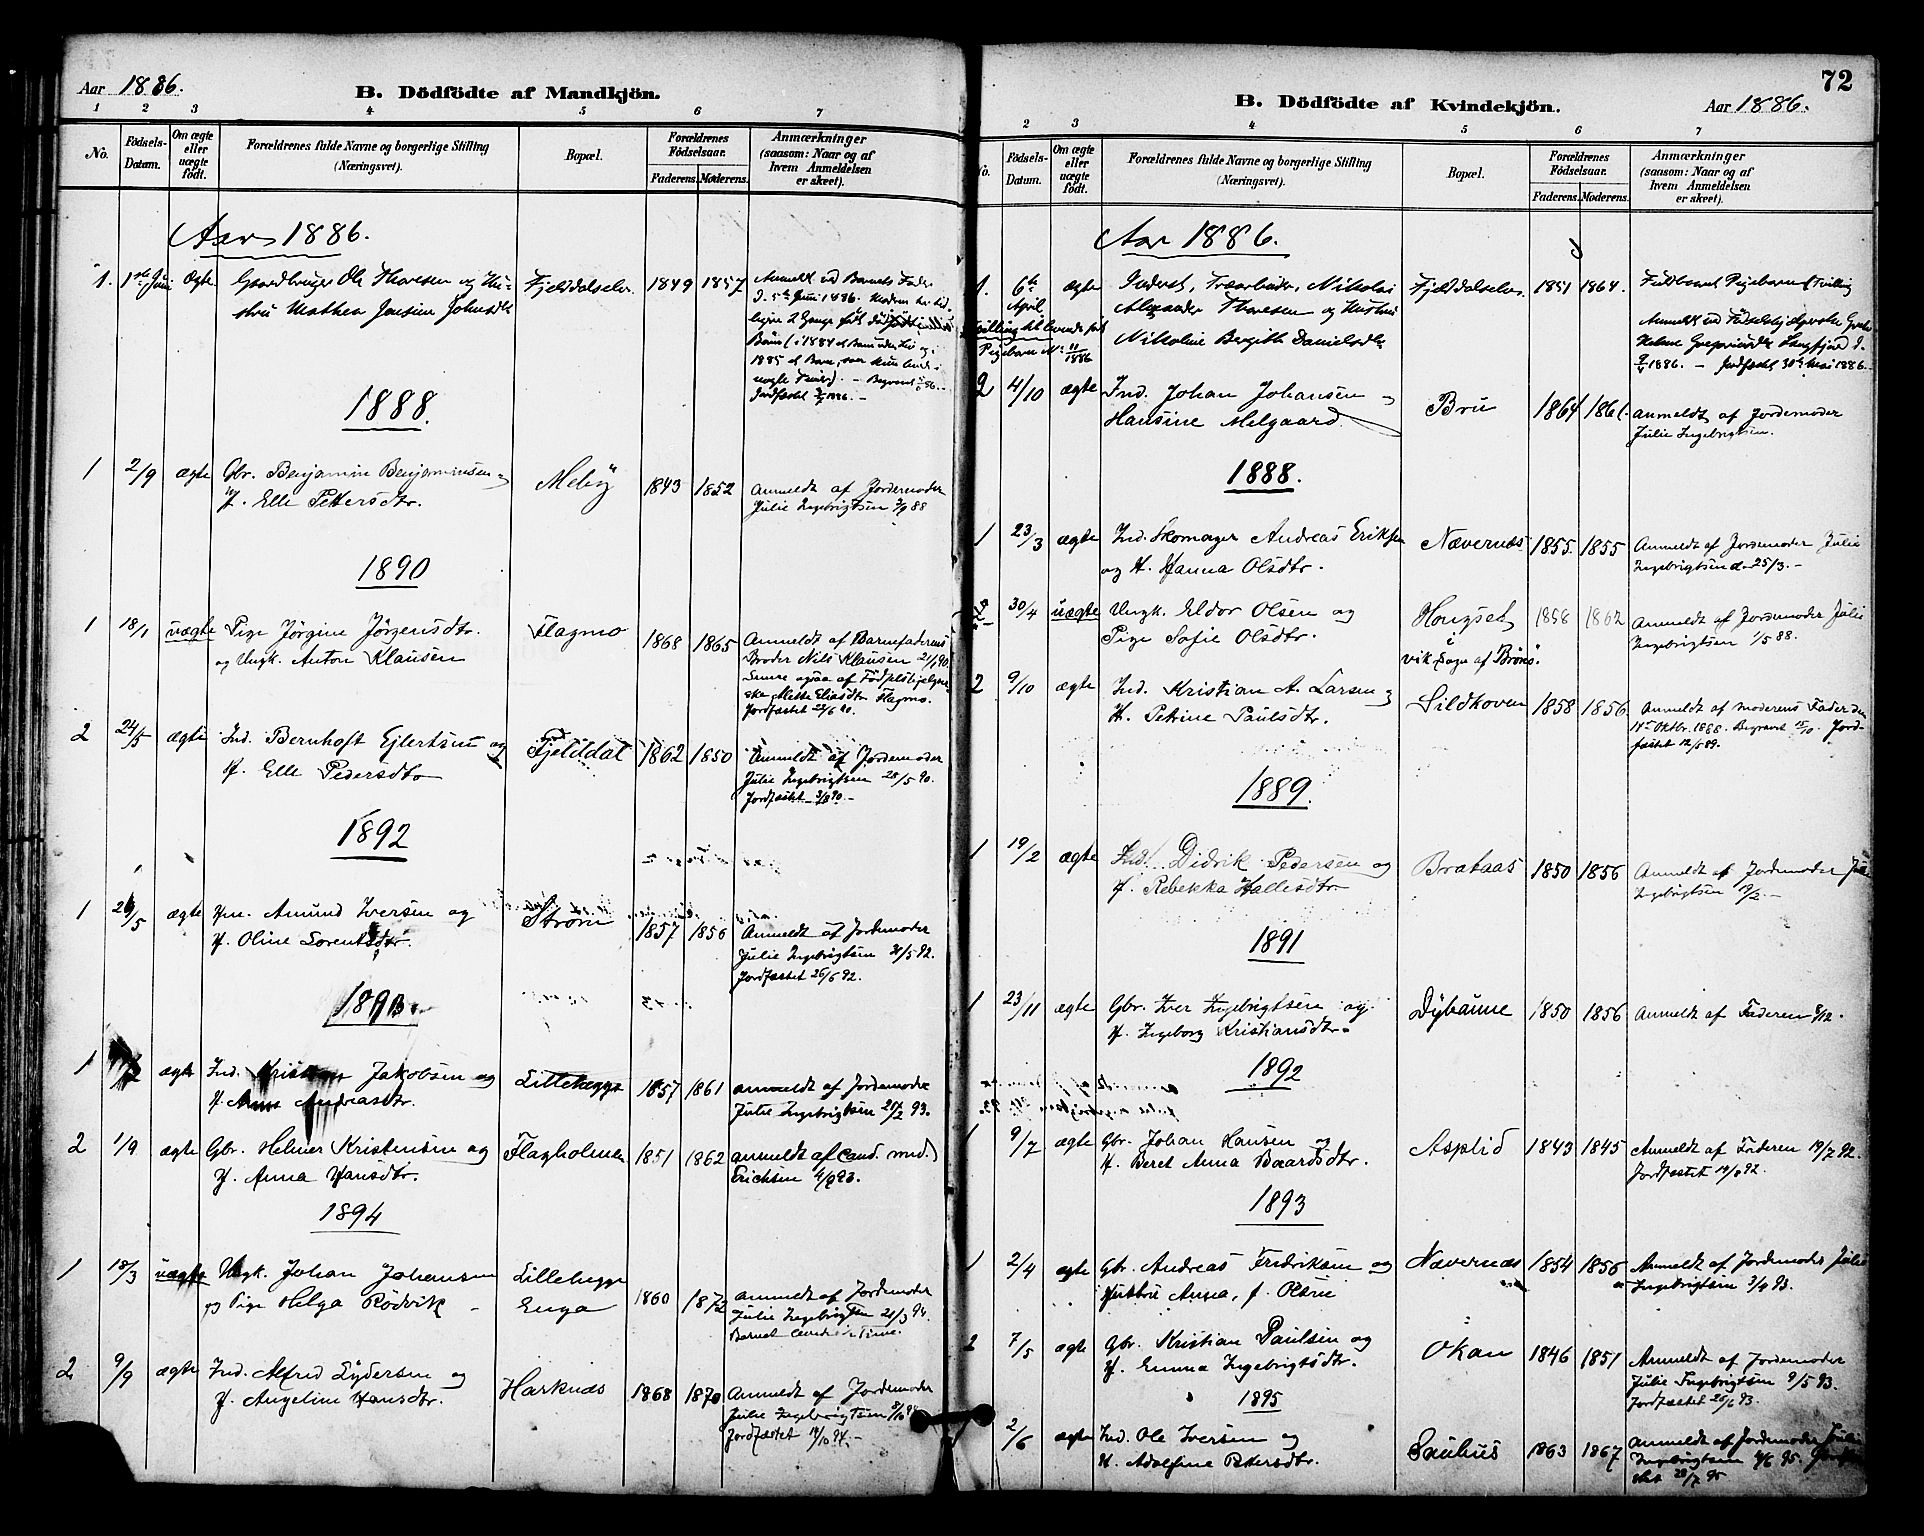 Aar 1886.
B. Dödfödte af Mandkjön.
1 2 3 4 5 6 7
No.
Födsels-Datum.
Om ægte eller uægte födt.
Forældrenes fulde Navne og borgerlige Stilling
(Næringsvei).
Bopæl.
Forældrenes Födselsaar.
Faderens. Moderens.
Anmærkninger
(saasom: Naar og af
hvem Anmeldelsen
er skeet).
Aar 1886.
1. 1ste Juni Ægte Gaardbruger Ole Thoresen og Hu-
stru Mathea Jensine Johnsdtr Fjeldalselv. 1849 1857
Anmeldt ved Barnets Fader
d. 5te Juni 1886. Moderen har tid-
ligere 2 Gange født
Børn (i 1884 et Barn uden Liv og i
1885 et Barn, som kun levede
nogle
Jordfæstet
1888.
1 2/9 ægte Gbr. Benjamin Benjaminsen og
H. Elle Pettersdtr. Meløy 1843 1852 Anmeldt af Jordemoder
Julie Ingebrigtsen 3/9 88
1890
1 18/1 uægte Pige Jörgine Jörgensdtr.
og Ungk. Anton Klausen Flagmo 1868 1865 Anmeldt af Barnefaderens
Broder Nils Klausen 21/1 90.
Senere ogsaa af Födselshjælper-
ske Mette Eliasdtr Flagmo.
Jordfæstet 22/6 90.
2 24/5 ægte Ind. Bernhoft Ejlertsen og
H. Elle Pedersdtr Fjelddal 1862 1850 Anmeldt af Jordemoder
Julie Ingebrigtsen 28/5 90.
Jordfæstet 3/8 90.
1892
1 26/5 ægte Hm. Amund Iversen og
H. Oline Lorentsdtr. Ström 1857 1856 Anmeldt af Jordemoder
Julie Ingebrigtsen 31/5 92.
Jordfæstet 26/6 92.
1893.
1 ægte Ind. Kristian Jakobsen og
H. Anna Andreasdtr. Lillehegge 1857 1861 anmeldt af Jordemoder
Julie Ingebrigtsen 21/2 93.
2 1/9 ægte Gbr. Helmer Kristensen og
H. Anna Hansdtr. Flagholmen 1851 1862 anmeldt af Cand. med.
Erichsen 4/9 93.
1894
1 18/3 uægte Ungk. Johan Johansen
og Pige Helga Rödvik Lillehegge
Enga 1860 1872 anmeldt af Jordemoder
Julie Ingebrigtsen 21/3 94.
Barnet
2 9/9 ægte Ind. Alfred Lydersen og
H. Angeline Hansdtr. Harknæs 1868 1870 Anmeldt af Jordemoder
Julie Ingebrigtsen 8/10 94
Jordfæstet 14/10 94.
72
B. Dödfödte af Kvindekjön.
Aar 1886.
2 3 4 5 6 7
No.
Födsels-Datum.
Om ægte eller uægte födt.
Forældrenes fulde Navne og borgerlige Stilling
(Næringsvei).
Bopæl.
Forældrenes Födselsaar.
Faderens. Moderens.
Anmærkninger
(saasom: Naar og af
hvem Anmeldelsen
er skeet).
Aar 1886.
1. 6te April ægte Inderst, Træarbeider, Nikolai
Alexander Thoresen og Hustru
Nikoline Bergithe Danielsdtr Fjeldalselv. 1851 1864. Fuldbaaret Pigebarn (Tvilling
Tvilling til levende født
Pigebarn No 11/1886
Anmeldt ved Fødselshj.
1886. — Jordfæstet 30te Mai 1886.
2 4/10 ægte Ind. Johan Johansen og
Hansine Melgaard. Bru 1864 1861. anmeldt af Jordemoder
Julie Ingebrigtsen.
1888.
1 23/3 ægte Ind. Skomager Andreas Eriksen
og H. Hanna Olsdtr. Nævernæs 1855. 1855 Anmeldt af Jordemoder Julie
Ingebrigtsen d. 25/3.
30/4 uægte Ungk. Eldor Olsen og
Pige Sofie Olsdtr. Hongset
i
vik Sogn af Brönö. 1858 1862 Anmeldt af Jordemoder Julie
Ingebrigtsen 1/5 88.
2 9/10 ægte Ind. Kristian A. Larsen og
H. Petrine Paulsdtr. Sildhoven 1858 1856 Anmeldt af moderens Fader den
14de Oktbr. 1888. Begravet 15/10 Jord-
fæstet 12/5 89.
1889.
1 19/2 ægte Ind. Didrik Pedersen og
H. Rebekka Hallesdtr Brataas 1850 1856 Anmeldt af Jordemoder Julie
Ingebrigtsen 19/2
1891
1 23/11 ægte Gbr. Iver Ingebrigtsen og
H. Ingeborg Kristiansdtr. Dybaune 1850 1856 Anmeldt af Faderen 8/12.
1892
1 9/7 ægte Gbr. Johan Hansen og
H. Beret Anna Baardsdtr. Asplid 1843 1845 Anmeldt af Faderen 19/7 92.
Jordfæstet 14/8 92.
1893
1 2/4 ægte Gbr. Andreas Fredriksen og
Hustru Anna, f. Olsdtr Nævernæs 1854 1856 Anmeldt af Jordemoder Julie
Ingebrigtsen 3/4 93.
2 7/5 ægte Gbr. Kristian Paulsen og
H. Emma Ingebrigtsdtr. Okan 1846 1851 Anmeldt af Jordemoder
Julie Ingebrigtsen 9/5 93.
Jordfæstet 25/6 93.
1895
2/6 ægte Ind. Ole Iversen og
H. Adolfine Pettersdtr. Sauhus 1863 1867 Anmeldt af Jordemoder Julie
Ingebrigtsen 4/6 95. Jordfæ-
stet 28/7 95